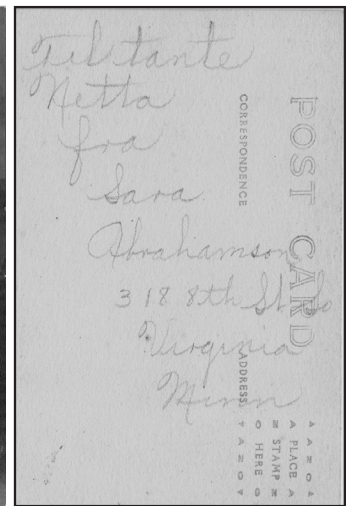 Til tante
Netta
fra
Sara
Abrahamson
318 8th St So
Virginia
Minn
POST CARD
CORRESPONDENCE
ADDRESS
PLACE
STAMP
HERE